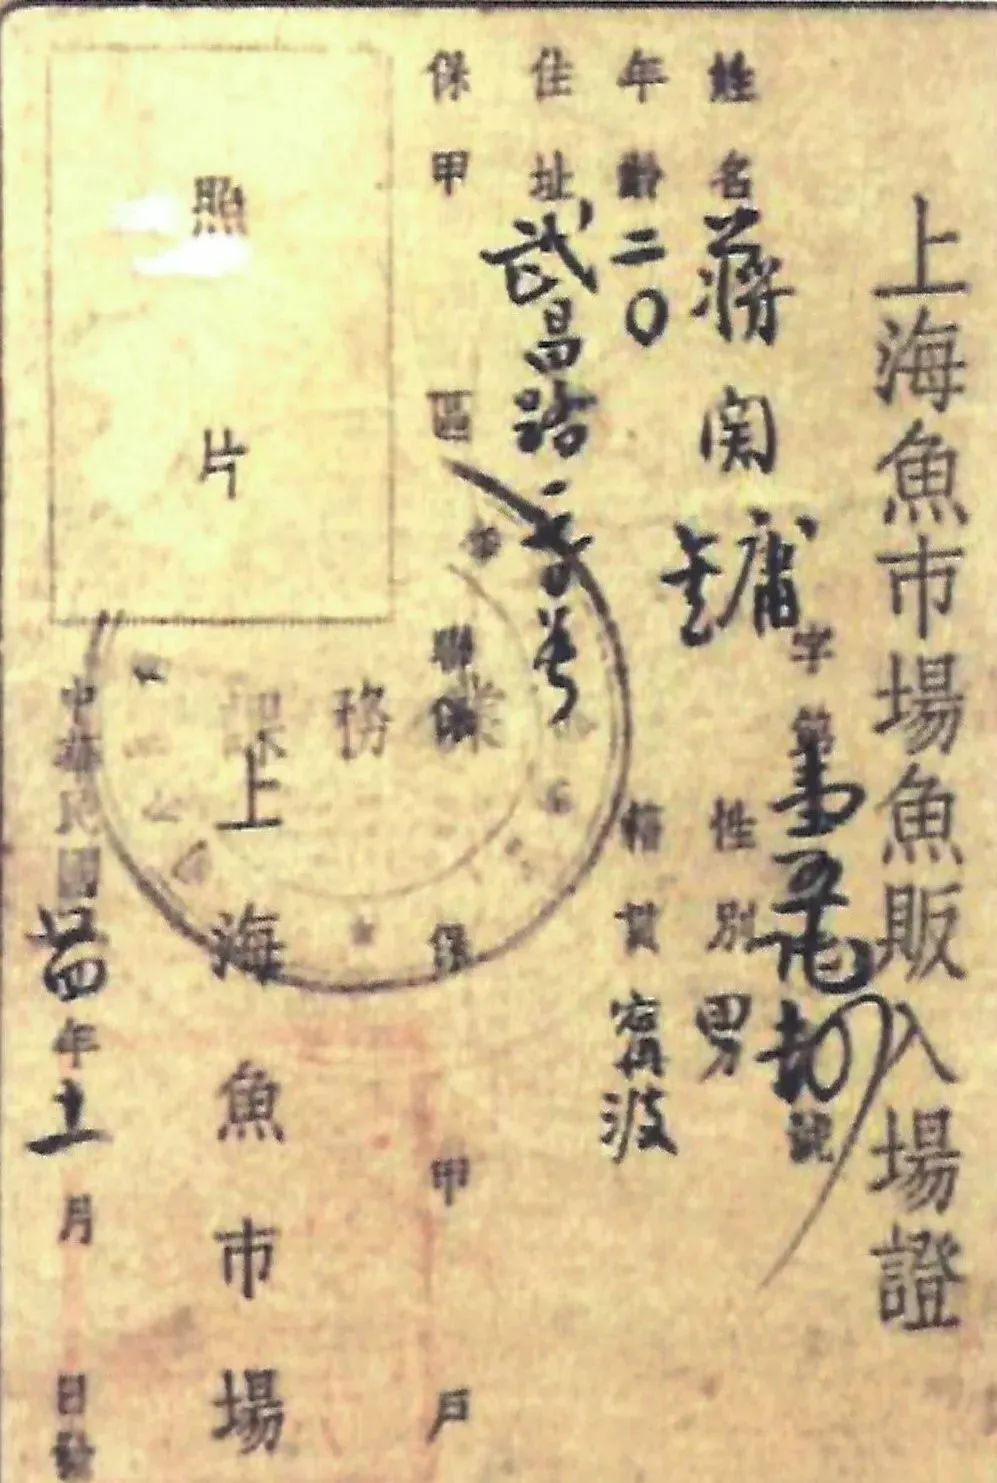 上海魚市場魚販入場證
字第 號
姓名 蔣 性別 男
年齡 二〇 籍貫 寗波
住址 武昌路
保甲 區 聯保 保 甲 戶
照片
業務課
上海魚市場
中華民國卅四年十一月 日發